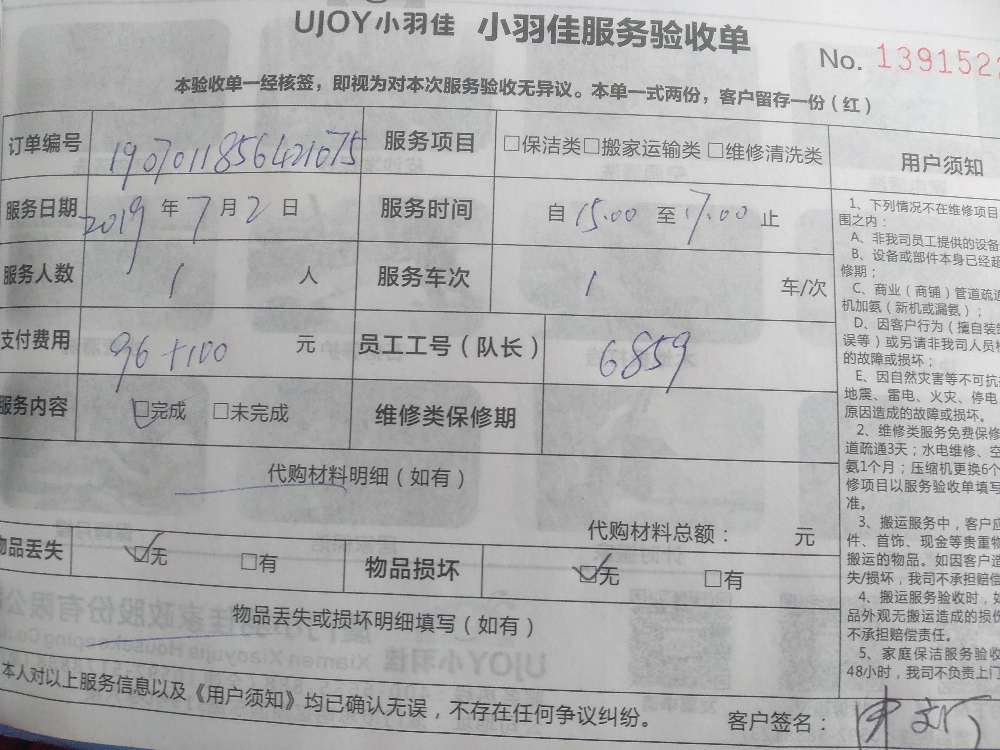 UJOY小羽佳 小羽佳服务验收单
No. 1391522
本验收单一经核签，即视为对本次服务验收无异议。本单一式两份，客户留存一份（红）
订单编号 1907011856421075 服务项目 □保洁类□搬家运输类 □维修清洗类
服务日期 2019 年 7 月 2 日 服务时间 自 15:00 至 17:00 止
服务人数 1 人 服务车次 1 车/次
支付费用 96+100 元 员工工号（队长） 6859
服务内容 □完成 □未完成 维修类保修期
代购材料明细（如有）
代购材料总额： 元
物品丢失 □无 □有 物品损坏 □无 □有
物品丢失或损坏明细填写（如有）
本人对以上服务信息以及《用户须知》均已确认无误，不存在任何争议纠纷。
客户签名：
用户须知
1、下列情况不在维修项目
围之内：
A、非我司员工提供的设备
B、设备或部件本身已经超
修期；
C、商业（商铺）管道疏通
机加氨（新机或漏氨）；
D、因客户行为（擅自装
误等）或另请非我司人员
的故障或损坏；
E、因自然灾害等不可抗
地震、雷电、火灾、停电
原因造成的故障或损坏。
2、维修类服务免费保修
道疏通3天；水电维修、空
氨1个月；压缩机更换6个
修项目以服务验收单填写
准。
3、搬运服务中，客户应
件、首饰、现金等贵重物
搬运的物品。如因客户造
失/损坏，我司不承担赔偿
4、搬运服务验收时，如
品外观无搬运造成的损伤
不承担赔偿责任。
5、家庭保洁服务验收
48小时，我司不负责上门